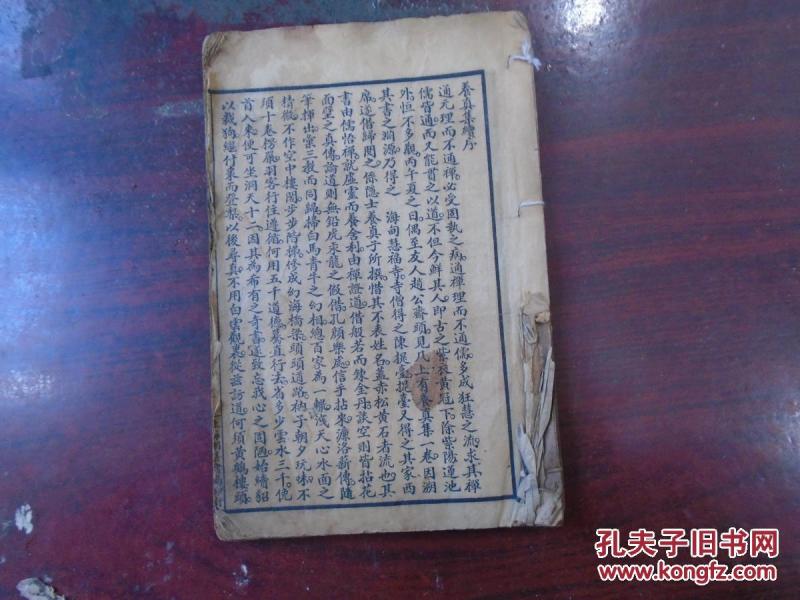 養真集續序
通元理而不通禪必受固執之病通禪理而不通儒多成狂慧之流求其禪
儒皆通而又能貫之以道不但今鮮其人即古之紫衣黃冠下除紫陽蓮池
外恒不多覯丙午夏之日偶至友人趙公齋頭見几上有養真集一卷因溯
其書之淵源乃得之 海甸慧福寺寺僧得之陳提臺提臺又得之其家西
席遂借歸閱之係隱士養真子所撰惜其不表姓名蓋赤松黃石者流也其
書由儒悟禪就虛靈而養舍利由禪證道借般若而鍊金丹談空則皆拈花
面壁之真傳論道則無鉛虎汞龍之假借孔顏樂處信手拈來濂洛薪傳隨
筆揮出彙三教而同歸掃白馬青牛之幻相總百家為一轍淺天心水面之
精微不作空中樓閣步步階梯修成幻海橋梁頭頭道路衲子朝夕玩味不
須十卷楞嚴羽客行住遵循何用五千道德養真行去省多少雲水三千侊
首入來便可坐洞天十二因其為希有之奇書遂致忘我心之固陋始續貂
以裁狗繼付棗而登梨以後尋真不用白雲觀裏從茲訪道何須黃鶴樓頭
孔夫子旧书网
www.kongfz.com